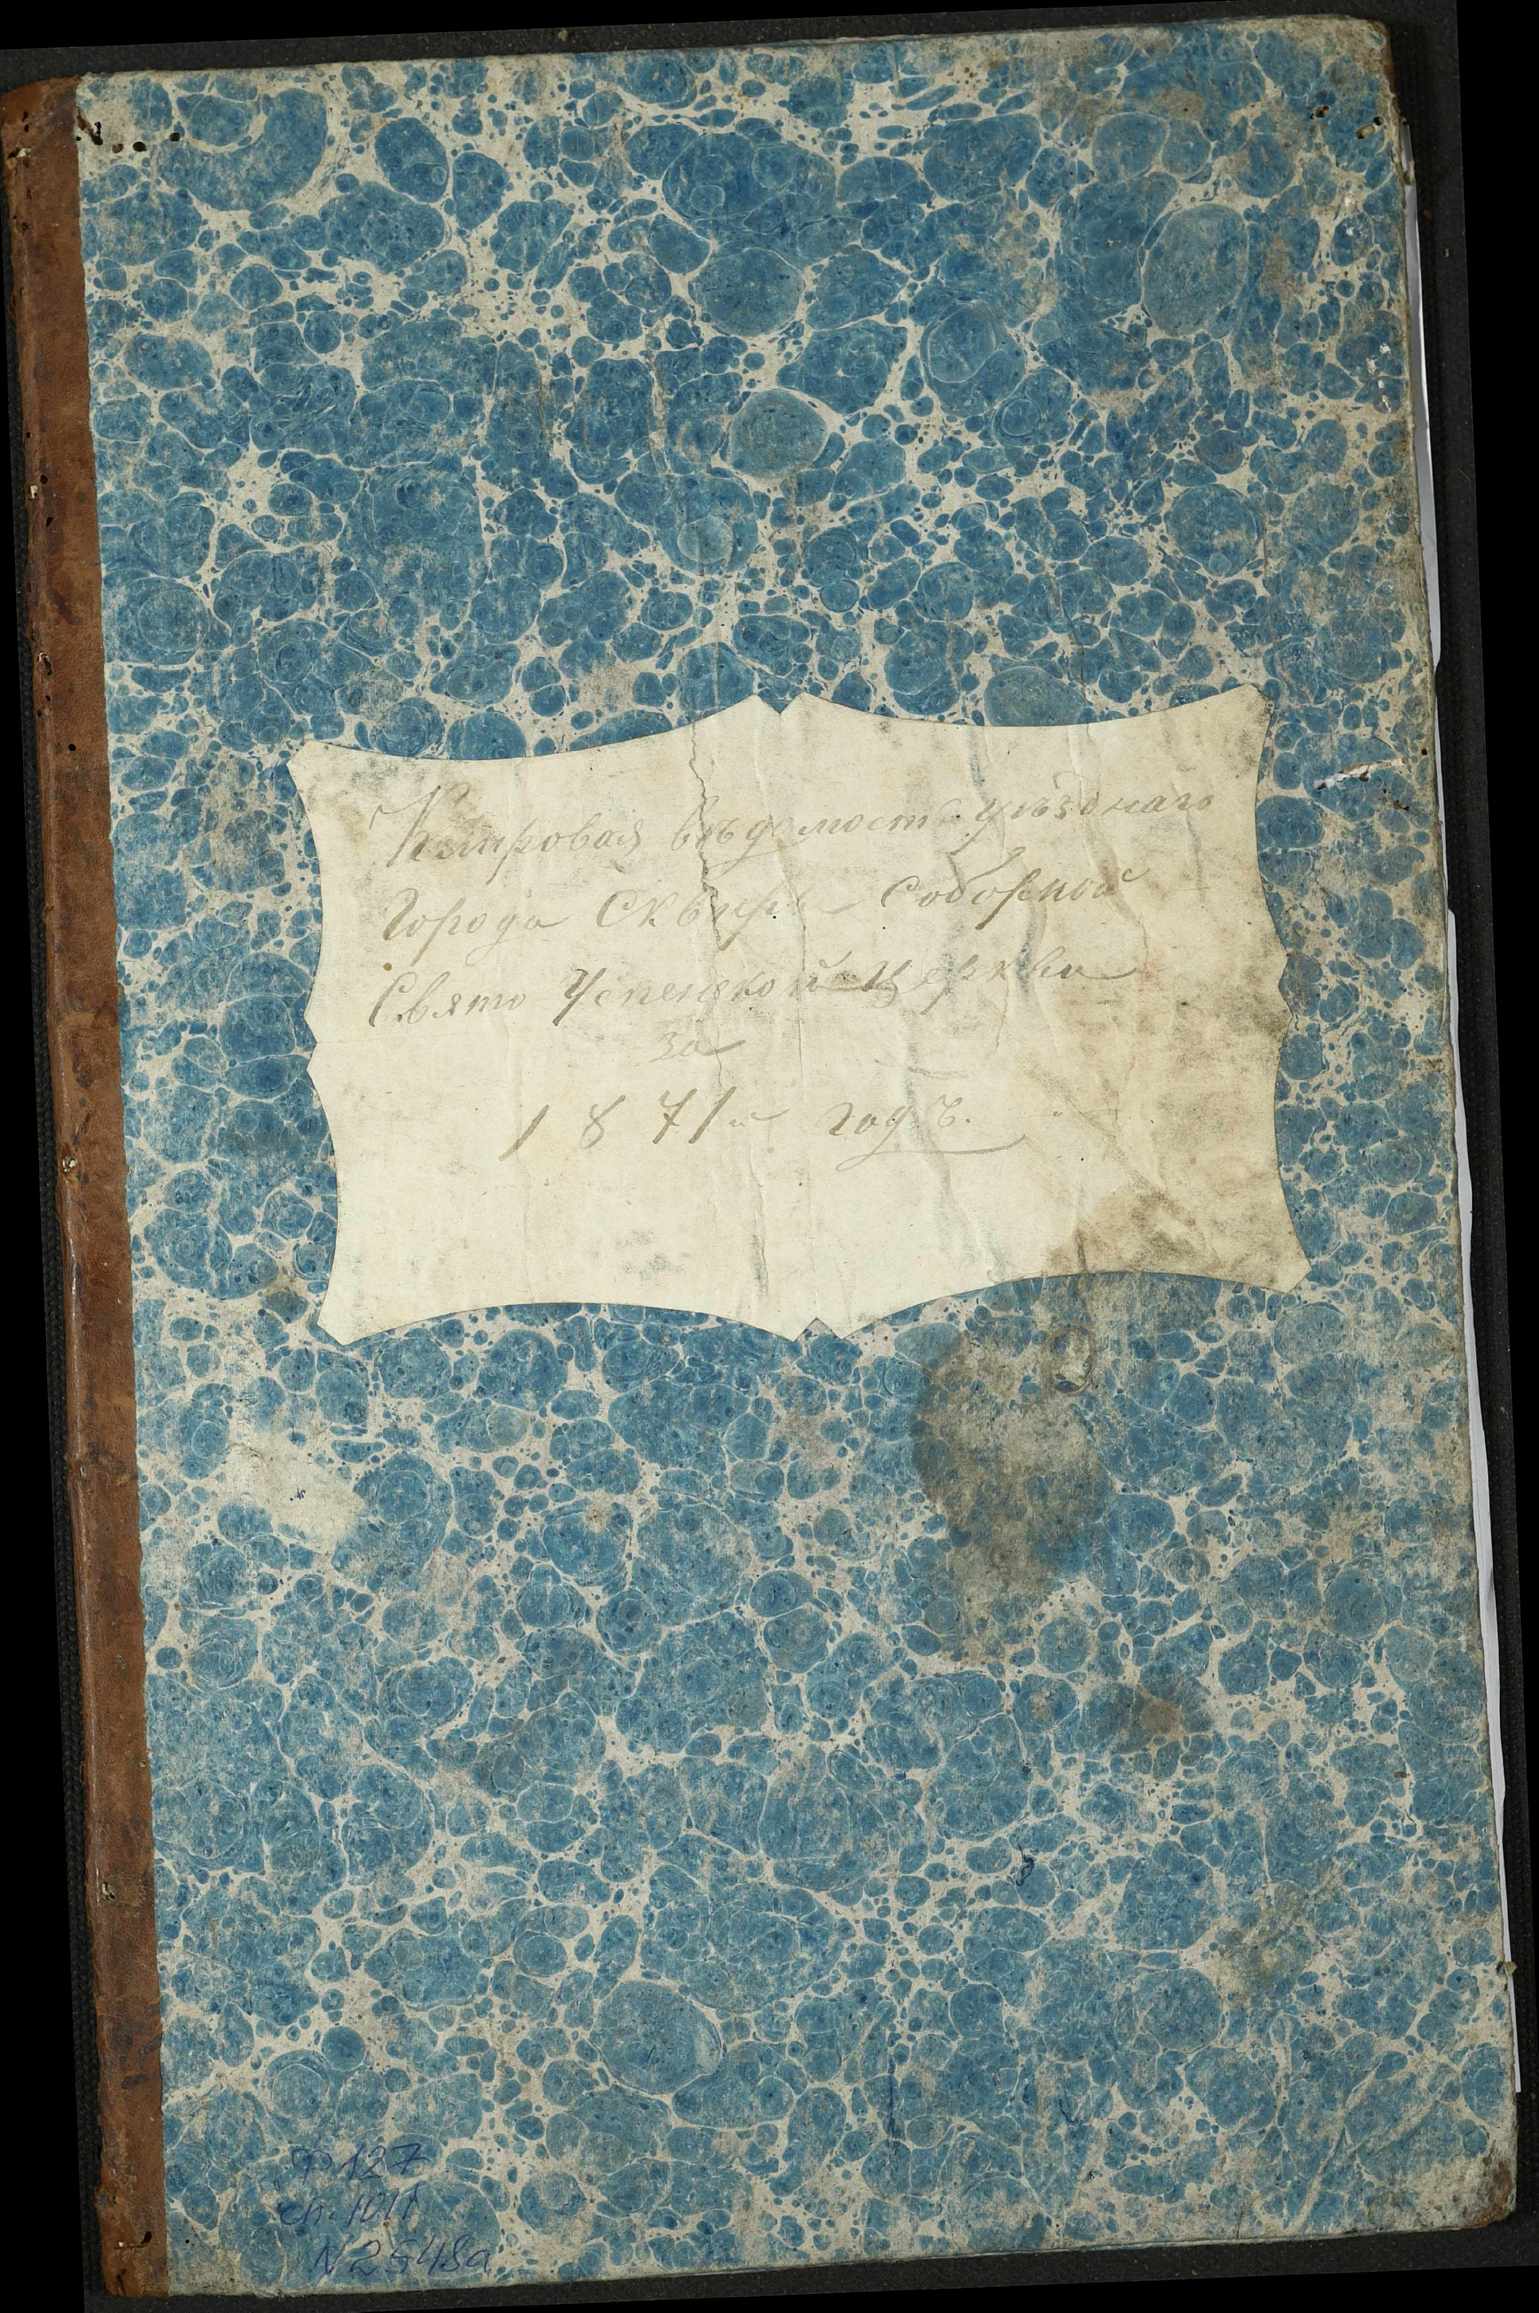 Клировая вѣдомость уѣзднаго
Города Сквиры Соборной
Свято Успенской Церкви
за
1871й годъ.
Ф 127
оп. 1011
N 2548а